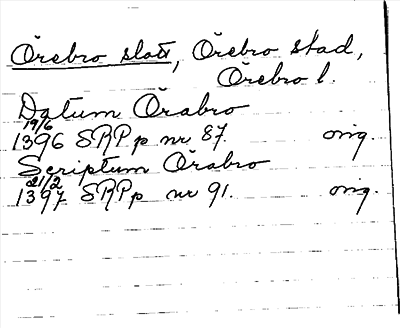 Örebro slott, Örebro stad,
Örebro l.
Datum Örabro
19/6
1396 SRPp nr 87. orig.
Scriptum Örabro
21/2
1397 SRPp nr 91. orig.